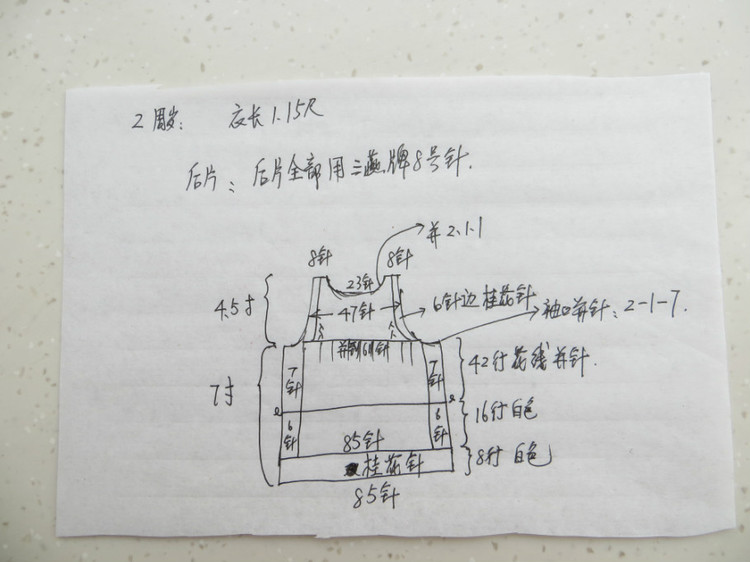 2周岁： 衣长1.15尺
后片：后片全部用三燕牌8号针.
并2.1.1
8针
8针
23针
4.5寸
47针
6针边桂花针
袖口并针：2-1-7.
并到61针
7寸
7针
7针
42行花线并针.
6针
6针
16行白色
85针
8行白色
桂花针
85针